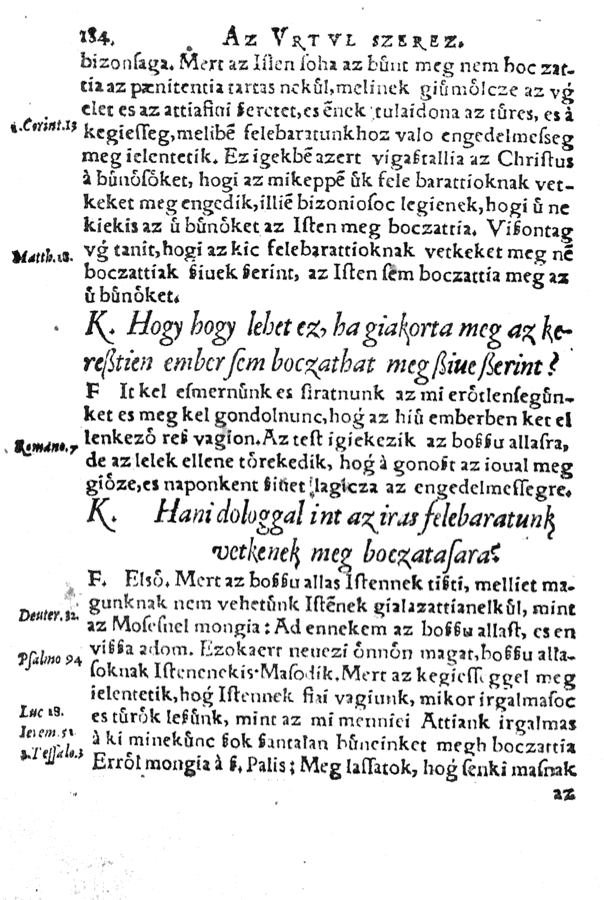 184. AZ VRTVL SZEREZ.
bizonsaga. Mert az Iſten ſoha az bu̇nt meg nem boc zat-
tia az pænitentia tartas nekűl, melinek giu̇mo̊lcze az vǵ
elet es az attiafiui ßeretet, es ẽnek tulaidona az tűres, es à
1. Corint. 13 kegieſſeg, melibẽ felebaratunkhoz valo engedelmeſseg
meg ielentetik. Ez igekbẽ azert vigaßtallia az Chriſtus
à bűnőſőket, hogi az mikeppẽ űk fele barattioknak vet-
keket meg engedik, illiẽ bizonioſoc legienek, hogi ű ne
kiekis az ű bűnőket az Iſten meg boczattia. Vißontag
Matth. 18. vǵ tanit, hogi az kic felebarattioknak vetkeket meg nẽ
boczattiak ßiuek ßerint, az Iſten ſem boczattia meg az
ű bűnőket.
K. Hogy hogy lehet ez, ha giakorta meg az ke-
reßtien ember ſem boczathat meg ßiue ßerint?
F It kel eſmernűnk es ſiratnunk az mi erőtlenſegűn-
ket es meg kel gondolnunc, hoǵ az hiű emberben ket el
Romano. 7 lenkező reß vagion. Az teſt igiekczik az boßßu allaſra,
de az lelek ellene tőrekedik, hoǵ à gonoßt az ioual meg
giőze, es naponkent ßiuet lagicza az engedelmeſſegre.
K. Hani dologgal int az iras felebaratunk
vetkenek meg boczataſara?
F. Első. Mert az boßßu allas Iſtennek tißti, melliet ma-
Deuter. 32. gunknak nem vehetűnk Iſtẽnek gialazattianelkűl, mint
az Moſesnel mongia: Ad ennekem az boßßu allaſt, es en
Pſalmo 94 vißßa adom. Ezokaert neuezi őnnőn magat, boßßu alla-
ſoknak Iſtenenekis. Maſodik. Mert az kegieſſeggel meg
ielentetik, hoǵ Iſtennek fiai vagiunk, mikor irgalmaſoc
Luc 18. es tűrők leßűnk, mint az mi menniei Attiank irgalmas
Ierem. 51 à ki minekűnc ßok ßantalan bűneinket megh boczattia
2. Teſſalo. 3 Erről mongia à ß. Palis; Meg laſſatok, hoǵ ſenki maſnak
az